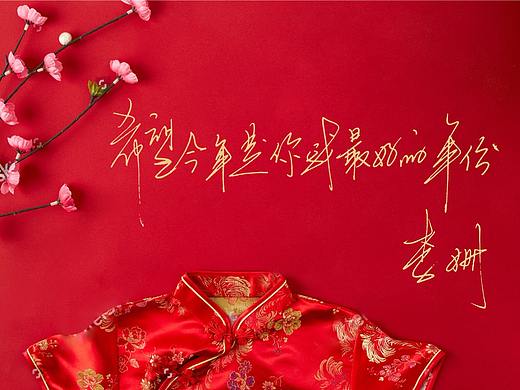 希望今年是你我最好的年份
李姗